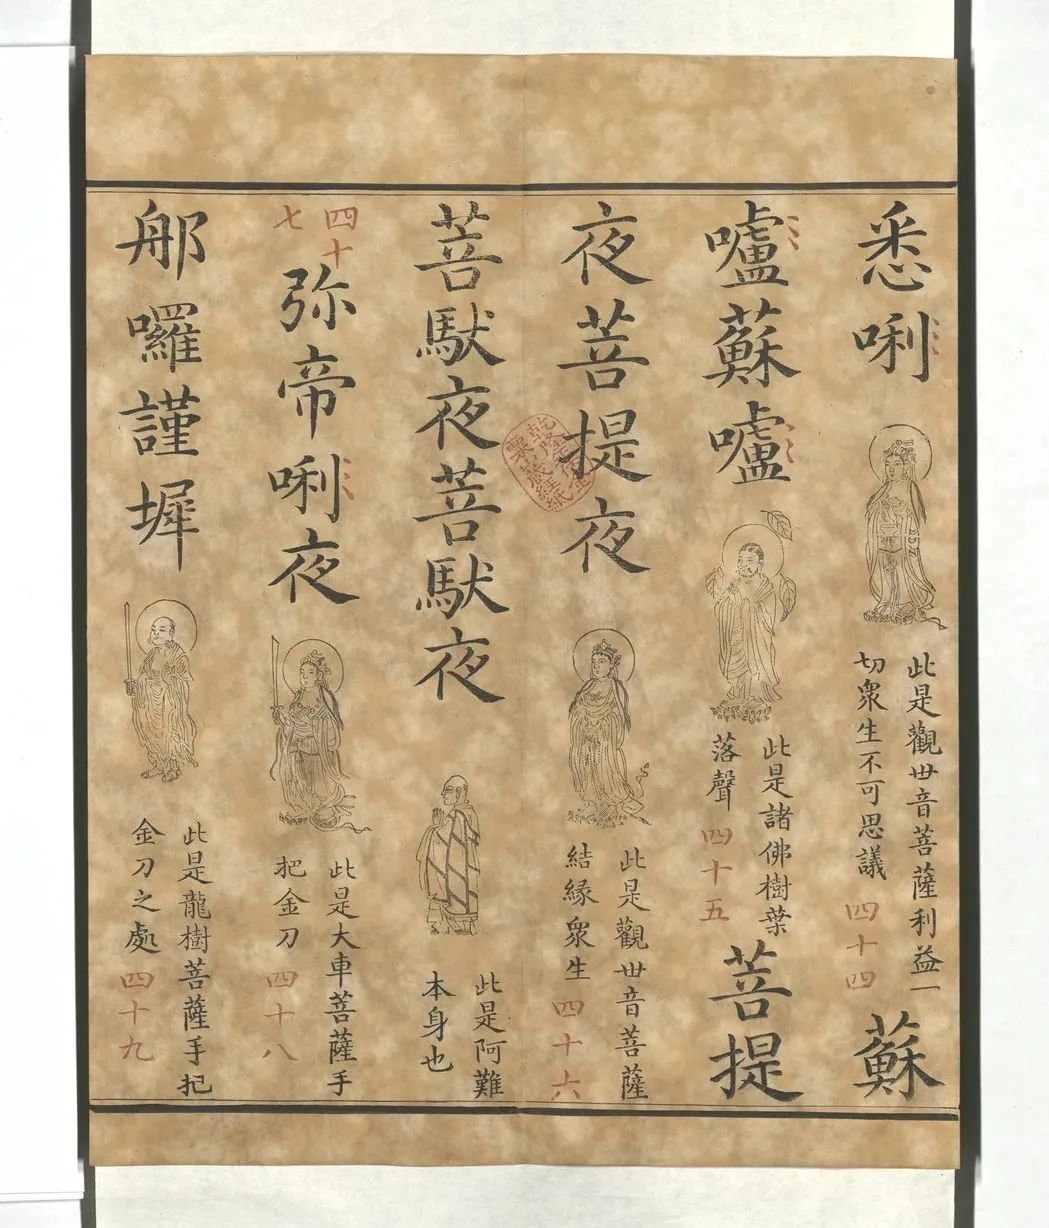 悉唎
此是觀世音菩薩利益一
切衆生不可思議 四十四
蘇
嚧蘇嚧
此是諸佛樹葉
落聲 四十五
菩提
夜菩提夜
此是觀世音菩薩
結縁衆生 四十六
菩馱夜菩馱夜
此是阿難
本身也
四十
七
弥帝唎夜
此是大車菩薩手
把金刀 四十八
那囉謹墀
此是龍樹菩薩手把
金刀之處 四十九
乾隆年仿金粟山藏經紙